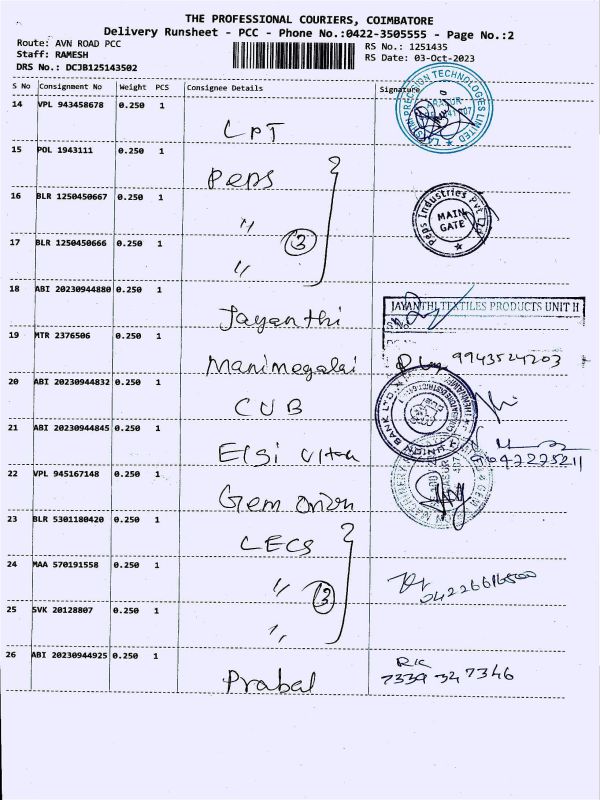 THE PROFESSIONAL COURIERS, COIMBATORE
Delivery Runsheet - PCC - Phone No.:0422-3505555 - Page No.:2
Route: AVN ROAD PCC
Staff: RAMESH
DRS No.: DCJB125143502
RS No.: 1251435
RS Date: 03-Oct-2023
S No Consignment No Weight PCS Consignee Details Signature
14 VPL 943458678 0.250 1 LPT
15 POL 1943111 0.250 1 Peps
16 BLR 1250450667 0.250 1 〃
3
17 BLR 1250450666 0.250 1 〃
PRECISION TECHNOLOGIES LIMITED
Peps Industries Pvt Ltd
MAIN
GATE
18 ABI 20230944880 0.250 1 Jayanthi
JAYANTHI TEXTILES PRODUCTS UNIT II
S.No.
19 MTR 2376506 0.250 1 Manimegalai 9943524203
20 ABI 20230944832 0.250 1 CUB
UNION BANK
21 ABI 20230944845 0.250 1 Elsi
22 VPL 945167148 0.250 1 Gem
MACHINERY
23 BLR 5301180420 0.250 1 LECS
24 MAA 570191558 0.250 1 〃
3
25 SVK 20128807 0.250 1 〃
26 ABI 20230944925 0.250 1 Prabal
RK
7339 347346